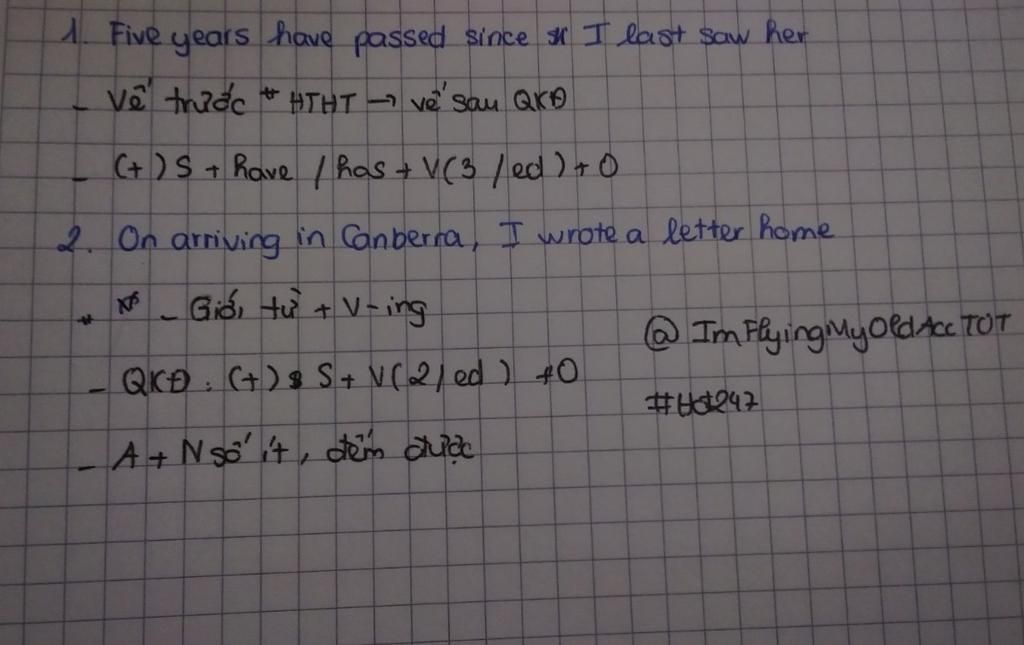 1. Five years have passed since I last saw her
- Vế trước HTHT → vế sau QKĐ
- (+) S + have / has + V(3 / ed) + O
2. On arriving in Canberra, I wrote a letter home
* - Giới từ + V-ing
- QKĐ : (+) S + V(2/ed) + O
- A + N số ít, đếm được
@ImFlyingMyOldAccTOT